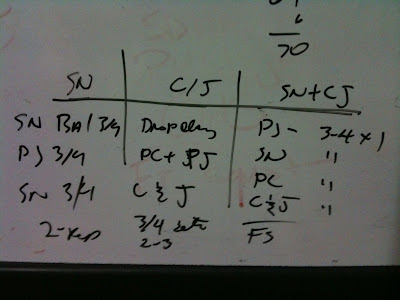 6
70
SN C/J SN+CJ
SN Bal 3/4 Drop PJ- 3-4x1
PJ 3/4 PC+PJ SN "
SN 3/4 C 1/2 J PC "
C 1/2 J "
2-rep 3/4 FS
2-3